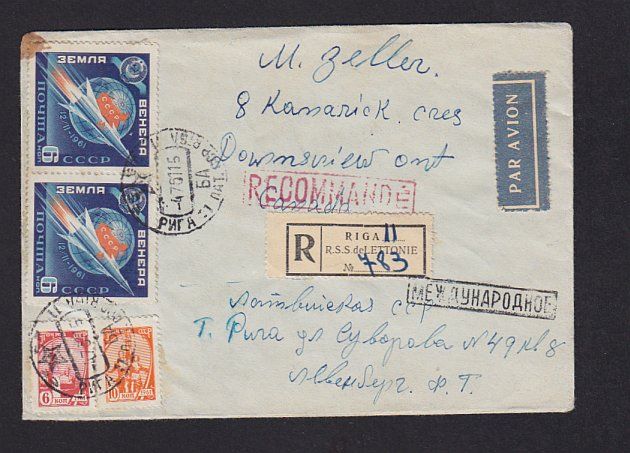 M. Zeller.
8 Kanarick. cres
Downsview ont
Canada
PAR AVION
RECOMMANDÉ
R
RIGA 11
R.S.S. de LETTONIE
№ 783
МЕЖДУНАРОДНОЕ
Латвийская сср
г. Рига ул Суворова N49 кв 8
Левенберг. Ф. Т.
ЗЕМЛЯ
ВЕНЕРА
ПОЧТА
СССР
12-II-1961
6 КОП
СССР
ЗЕМЛЯ
ВЕНЕРА
ПОЧТА
СССР
12-II-1961
6 КОП
СССР
РИГА
РИГА
6 КОП
10 КОП